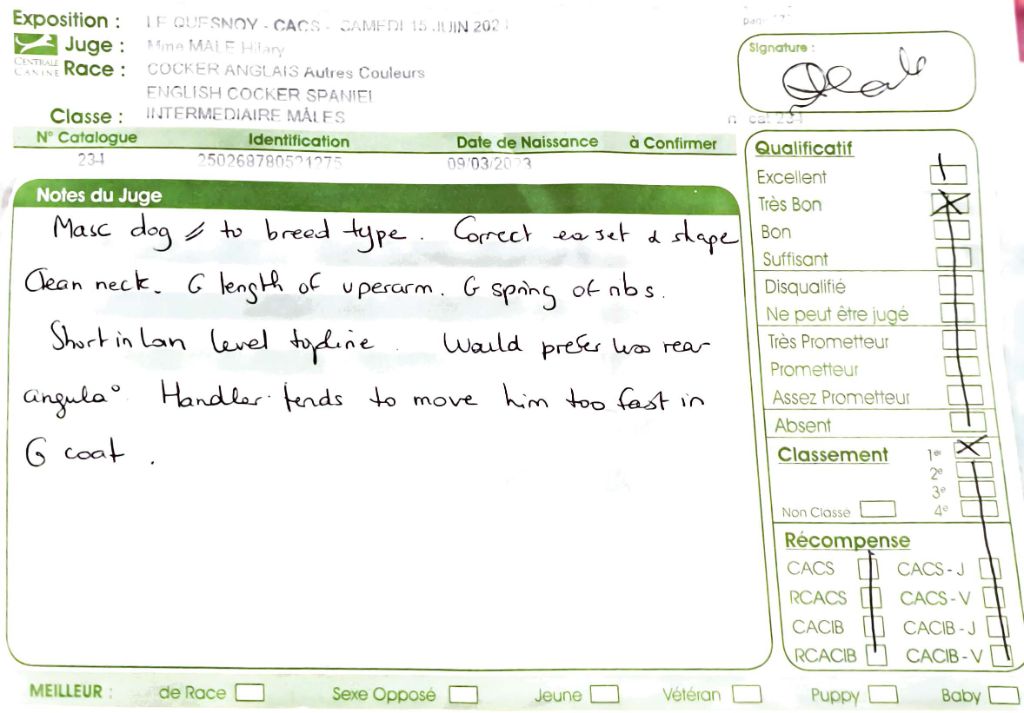 Exposition : LE QUESNOY - CACS - SAMEDI 15 JUIN 202
Juge : Mme MALE Hilary
CENTRALE CANINE
Race : COCKER ANGLAIS Autres Couleurs
ENGLISH COCKER SPANIEL
Classe : INTERMEDIAIRE MÂLES
Signature :
n° cat 234
N° Catalogue Identification Date de Naissance à Confirmer
234 250268780521275 09/03/2023
Notes du Juge
Masc dog to breed type. Correct ea set & shape
Clean neck. G length of uperarm. G spring of ribs.
Short in loin level topline. Would prefer less rear
angula°. Handler tends to move him too fast in
G coat.
Qualificatif
Excellent
Très Bon
Bon
Suffisant
Disqualifié
Ne peut être jugé
Très Prometteur
Prometteur
Assez Prometteur
Absent
Classement 1er
2e
3e
Non Classe 4e
Récompense
CACS CACS - J
RCACS CACS - V
CACIB CACIB - J
RCACIB CACIB - V
MEILLEUR : de Race Sexe Opposé Jeune Vétéran Puppy Baby